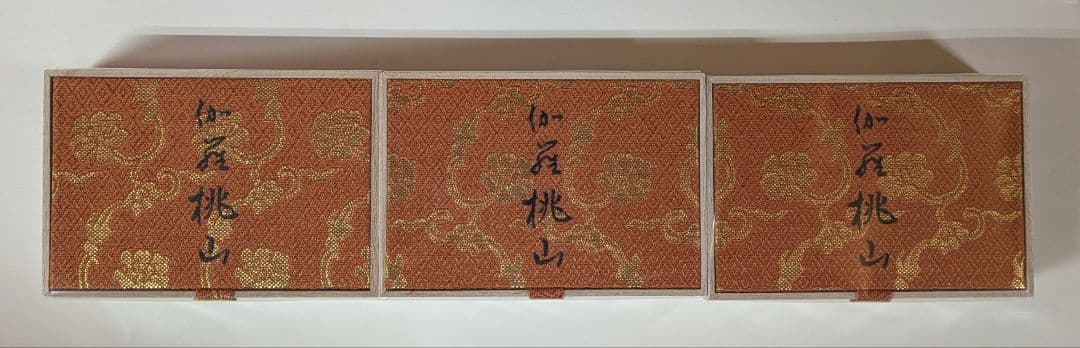 伽羅桃山
伽羅桃山
伽羅桃山